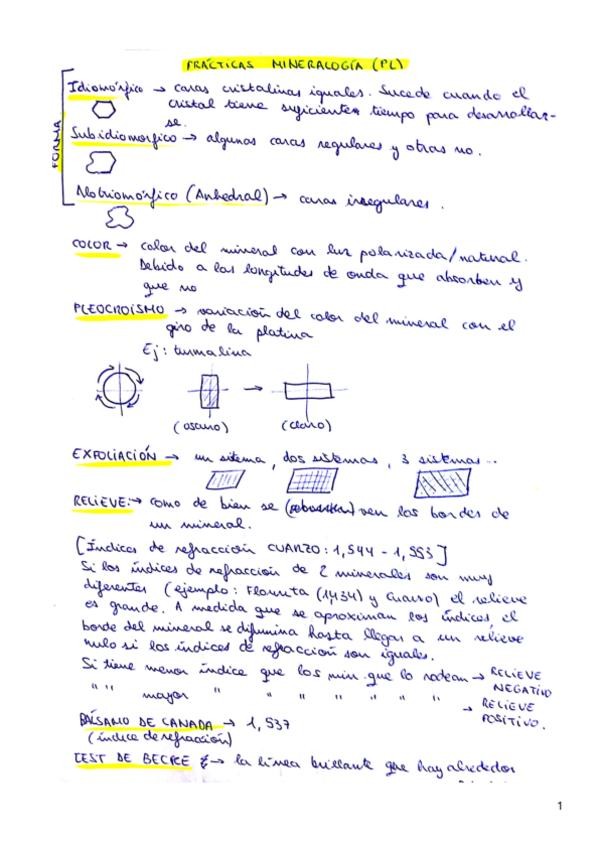 PRÁCTICAS MINERALOGÍA (PL)
FORMA
Idiomórfico → caras cristalinas iguales. Sucede cuando el
cristal tiene suficientes tiempo para desarrollar-
se.
Subidiomorfico → algunas caras regulares y otras no.
Alotriomórfico (Anhedral) → caras irregulares.
COLOR → color del mineral con luz polarizada/natural.
Debido a las longitudes de onda que absorben y
que no
PLEOCROÍSMO → variación del color del mineral con el
giro de la platina
Ej: turmalina
(oscuro) (claro)
EXFOLIACIÓN → un sistema, dos sistemas, 3 sistemas...
RELIEVE: → como de bien se ven los bordes de
un mineral.
[Índices de refracción CUARZO: 1,544 - 1,553]
Si los índices de refracción de 2 minerales son muy
diferentes (ejemplo: Fluorita (1,434) y Cuarzo) el relieve
es grande. A medida que se aproximan los índices, el
borde del mineral se difumina hasta llegar a un relieve
nulo si los índices de refracción son iguales.
Si tiene menor índice que los min. que lo rodean → RELIEVE
NEGATIVO
" " mayor " " " " " " " → RELIEVE
POSITIVO.
BÁLSAMO DE CANADA → 1,537
(índice de refracción)
TEST DE BECKE → la línea brillante que hay alrededor
1